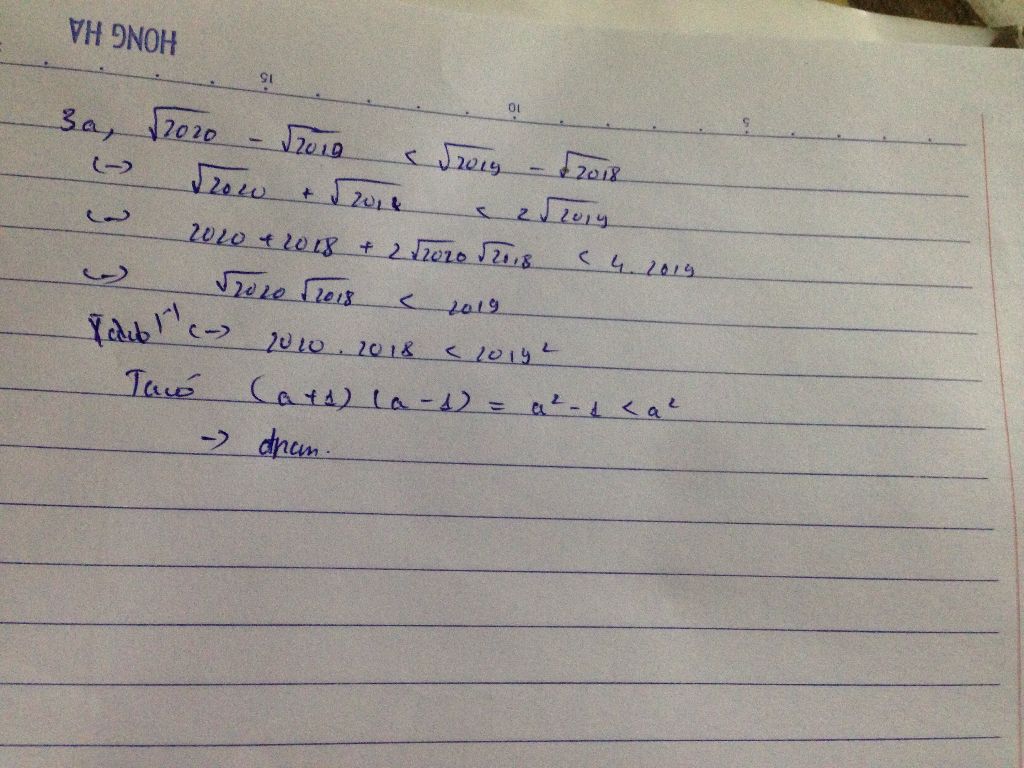 HONG HA
15
10
5
3a, √2020 - √2019 < √2019 - √2018
<-> √2020 + √2018 < 2√2019
<-> 2020 + 2018 + 2√2020 √2018 < 4. 2019
<-> √2020 √2018 < 2019
<-> 2020 . 2018 < 2019²
Ta có (a+1) (a-1) = a² - 1 < a²
-> đpcm.